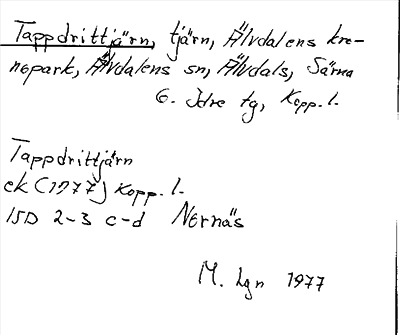 Tappdrittjärn, tjärn, Älvdalens kro-
nopark, Älvdalens sn, Älvdals, Särna
o. Idre tg, Kopp. l.
Tappdrittjärn
ek (1977) Kopp. l.
15D 2-3 c-d Nornäs
M. Lgn 1977